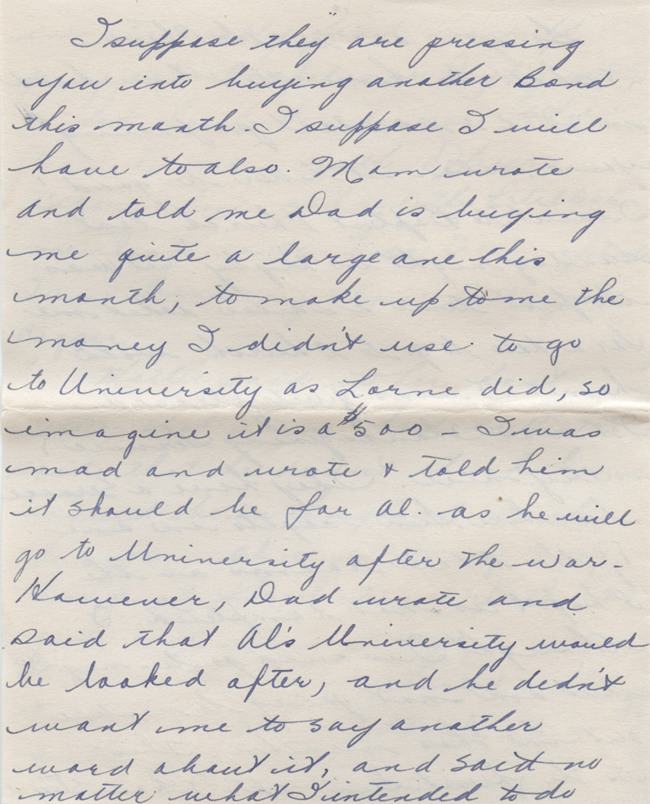 I suppose they are pressing
you into buying another Bond
this month. I suppose I will
have to also. Mom wrote
and told me Dad is buying
me quite a large one this
month, to make up to me the
money I didn't use to go
to University as Lorne did, so
imagine it is a $500 - I was
mad and wrote & told him
it should be for Al. as he will
go to University after the war-
However, Dad wrote and
said that Al's University would
be looked after, and he didn't
want me to say another
word about it, and said no
matter what I intended to do